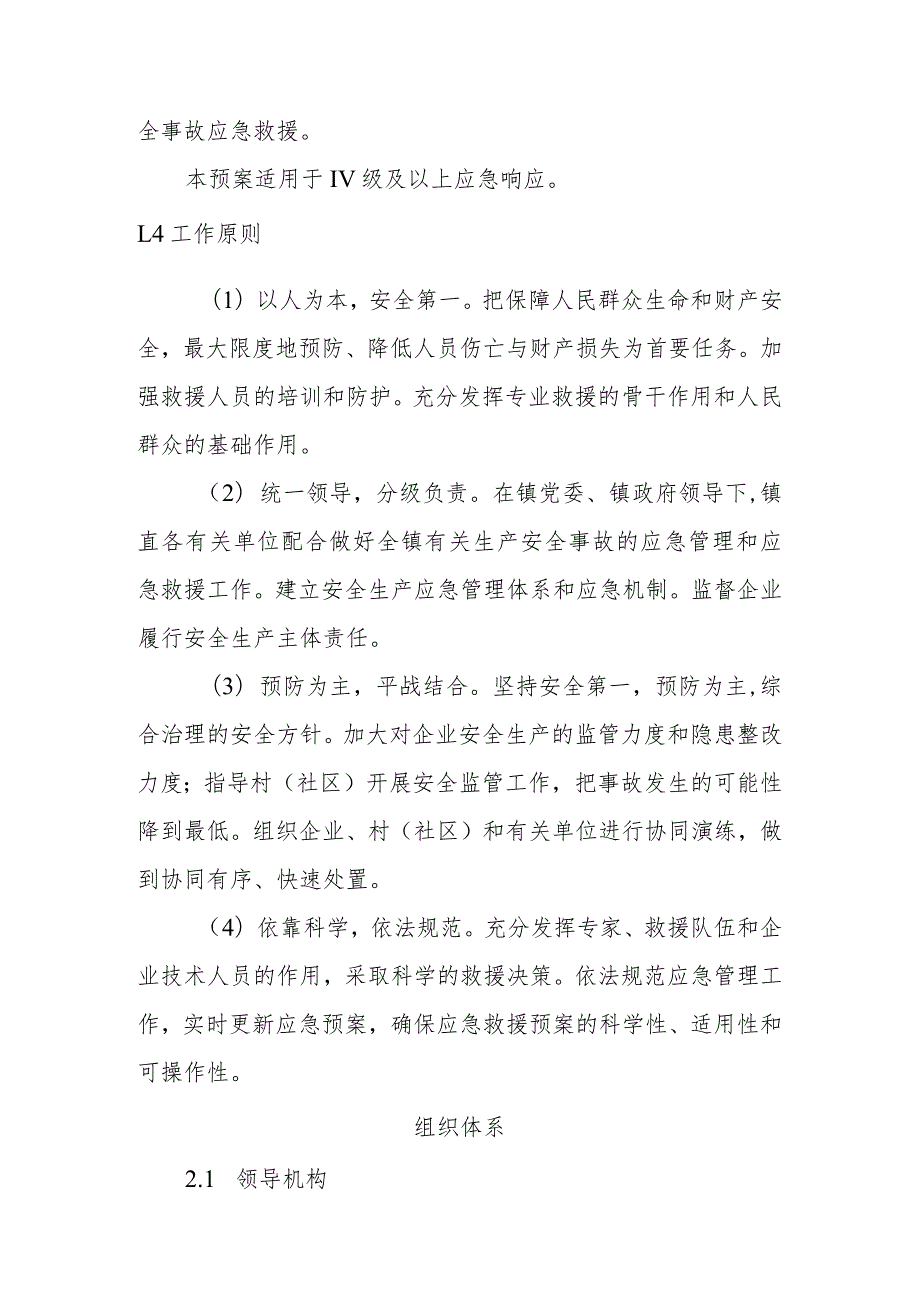 全事故应急救援。
本预案适用于 IV 级及以上应急响应。
L4 工作原则
（1）以人为本，安全第一。把保障人民群众生命和财产安
全，最大限度地预防、降低人员伤亡与财产损失为首要任务。加
强救援人员的培训和防护。充分发挥专业救援的骨干作用和人民
群众的基础作用。
（2）统一领导，分级负责。在镇党委、镇政府领导下,镇
直各有关单位配合做好全镇有关生产安全事故的应急管理和应
急救援工作。建立安全生产应急管理体系和应急机制。监督企业
履行安全生产主体责任。
（3）预防为主，平战结合。坚持安全第一，预防为主,综
合治理的安全方针。加大对企业安全生产的监管力度和隐患整改
力度；指导村（社区）开展安全监管工作，把事故发生的可能性
降到最低。组织企业、村（社区）和有关单位进行协同演练，做
到协同有序、快速处置。
（4）依靠科学，依法规范。充分发挥专家、救援队伍和企
业技术人员的作用，采取科学的救援决策。依法规范应急管理工
作，实时更新应急预案，确保应急救援预案的科学性、适用性和
可操作性。
组织体系
2.1 领导机构